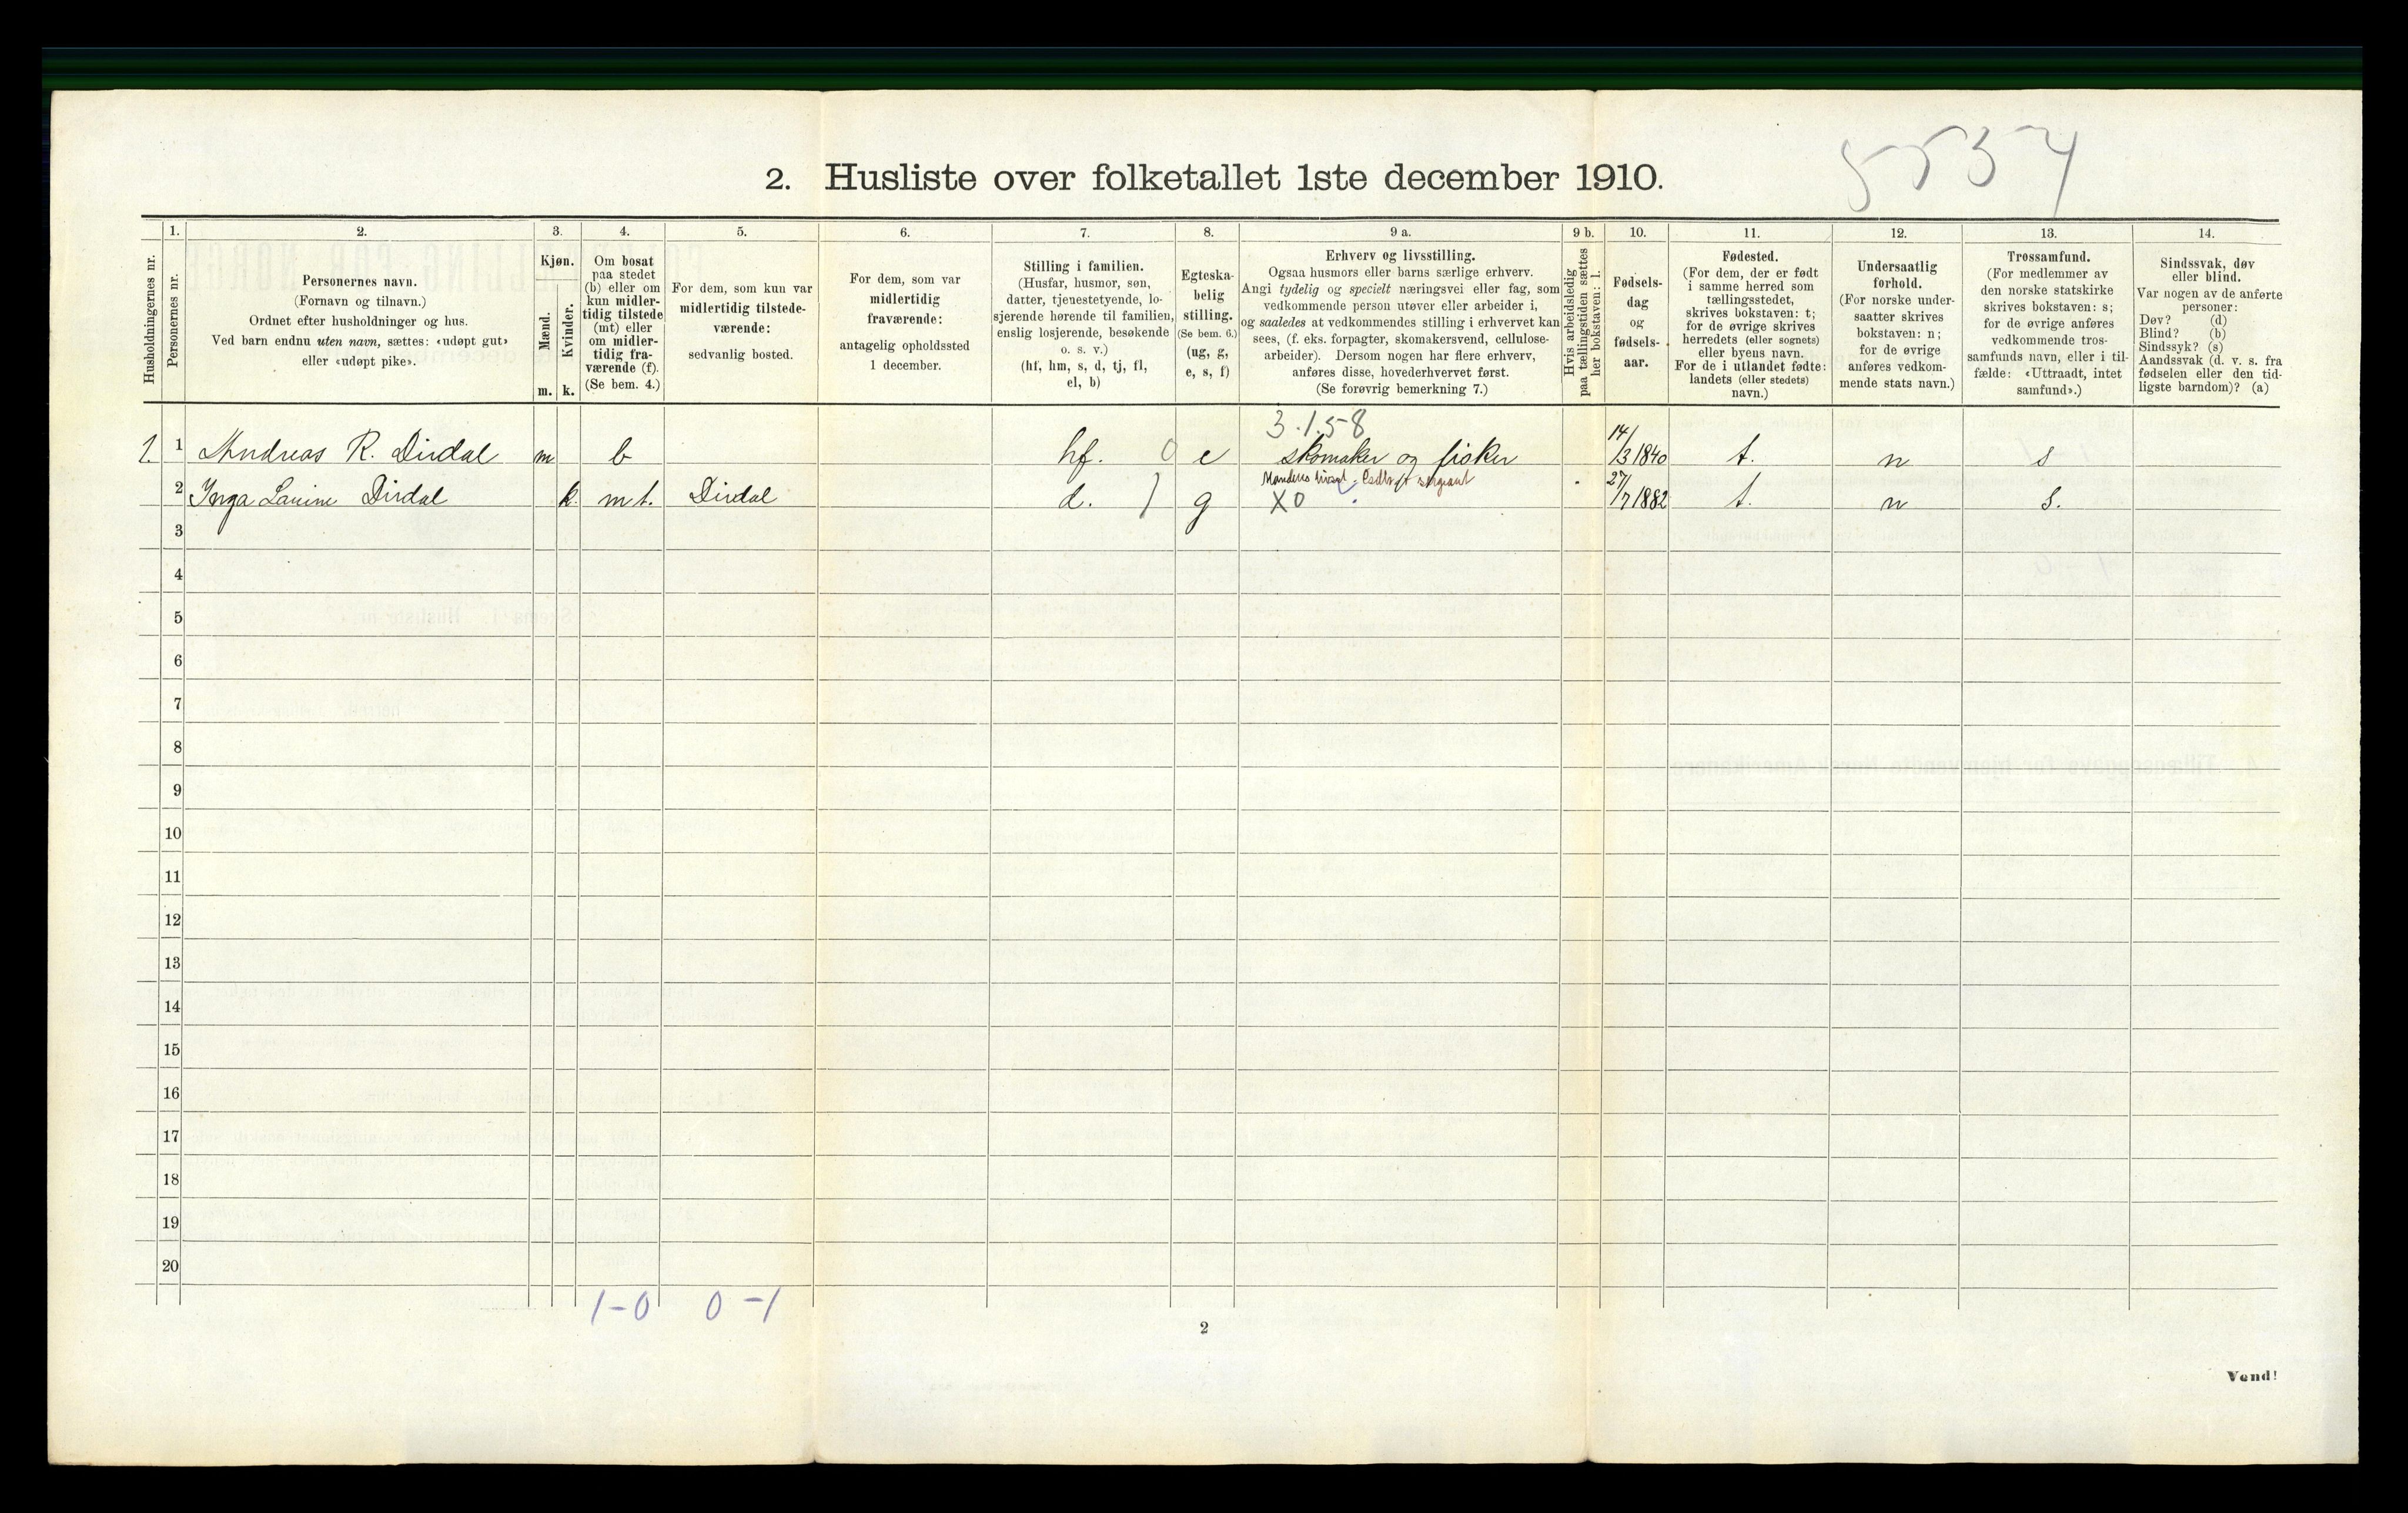 5534
2. Husliste over folketallet 1ste december 1910.
Husholdningernes nr.
1.
Personernes nr.
2.
Personernes navn.
(Fornavn og tilnavn.)
Ordnet efter husholdninger og hus.
Ved barn endnu uten navn, sættes: «udøpt gut»
eller «udøpt pike».
3.
Kjøn.
Mænd.
m.
Kvinder.
k.
4.
Om bosat
paa stedet
(b) eller om
kun midler-
tidig tilstede
(mt) eller
om midler-
tidig fra-
værende (f).
(Se bem. 4.)
5.
For dem, som kun var
midlertidig tilstede-
værende:
sedvanlig bosted.
6.
For dem, som var
midlertidig
fraværende:
antagelig opholdssted
1 december.
7.
Stilling i familien.
(Husfar, husmor, søn,
datter, tjenestetyende, lo-
sjerende hørende til familien,
enslig losjerende, besøkende
o. s. v.)
(hf, hm, s, d, tj, fl,
el, b)
8.
Egteska-
belig
stilling.
(Se bem. 6.)
(ug, g,
e, s, f)
9 a.
Erhverv og livsstilling.
Ogsaa husmors eller barns særlige erhverv.
Angi tydelig og specielt næringsvei eller fag, som
vedkommende person utøver eller arbeider i,
og saaledes at vedkommendes stilling i erhvervet kan
sees, (f. eks. forpagter, skomakersvend, cellulose-
arbeider). Dersom nogen har flere erhverv,
anføres disse, hovederhvervet først.
(Se forøvrig bemerkning 7.)
9 b.
Hvis arbeidsledig
paa tællingstiden sættes
her bokstaven: l.
10.
Fødsels-
dag
og
fødsels-
aar.
11.
Fødested.
(For dem, der er født
i samme herred som
tællingsstedet,
skrives bokstaven: t;
for de øvrige skrives
herredets (eller sognets)
eller byens navn.
For de i utlandet fødte:
landets (eller stedets)
navn.)
12.
Undersaatlig
forhold.
(For norske under-
saatter skrives
bokstaven: n;
for de øvrige
anføres vedkom-
mende stats navn.)
13.
Trossamfund.
(For medlemmer av
den norske statskirke
skrives bokstaven: s;
for de øvrige anføres
vedkommende tros-
samfunds navn, eller i til-
fælde: «Uttraadt, intet
samfund».)
14.
Sindssvak, døv
eller blind.
Var nogen av de anførte
personer:
Døv? (d)
Blind? (b)
Sindssyk? (s)
Aandssvak (d. v. s. fra
fødselen eller den tid-
ligste barndom)? (a)
3.1.58
1. 1 Andreas R. Dirdal m b hf. 0 e skomaker og fisker 14/3 1840 t. n s
2 Inga Lauine Dirdal k. mt. Dirdal d. ) g X0 27/7 1882 t. n s.
3
4
5
6
7
8
9
10
11
12
13
14
15
16
17
18
19
20
1-0 0-1
2
Vend!